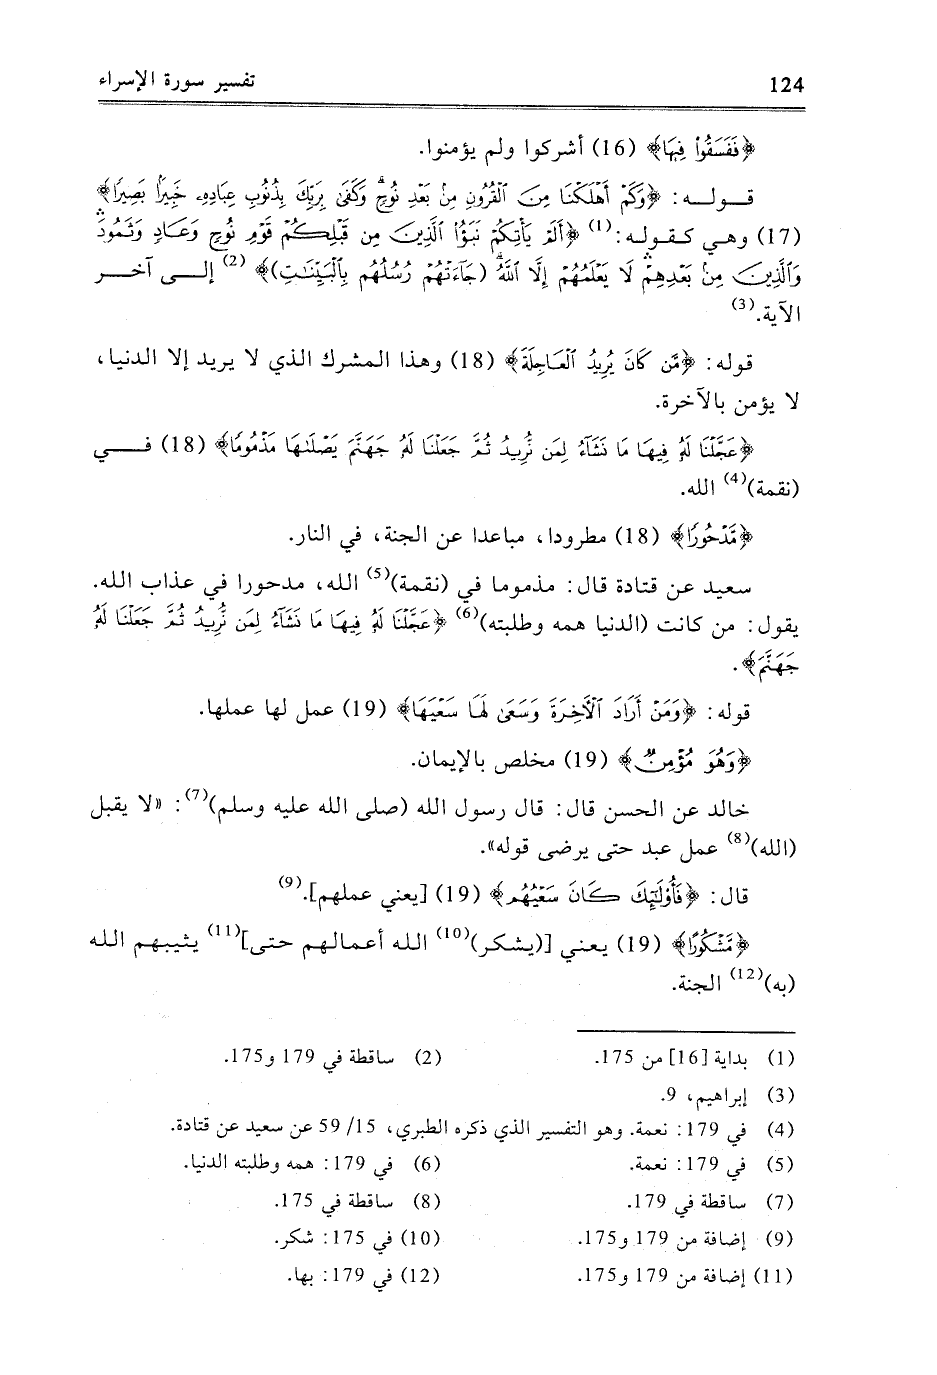 124
تفسير سورة الإسراء
﴿فَفَسَقُوا۟ فِيهَا﴾ (16) أشركوا ولم يؤمنوا.
قوله: ﴿وَكَمْ أَهْلَكْنَا مِنَ ٱلْقُرُونِ مِنۢ بَعْدِ نُوحٍ ۗ وَكَفَىٰ بِرَبِّكَ بِذُنُوبِ عِبَادِهِۦ خَبِيرًۢا بَصِيرًا﴾
(17) وهي كقوله:(1) ﴿أَلَمْ يَأْتِكُمْ نَبَؤُا۟ ٱلَّذِينَ مِن قَبْلِكُمْ قَوْمِ نُوحٍ وَعَادٍ وَثَمُودَ ۛ
وَٱلَّذِينَ مِنۢ بَعْدِهِمْ ۛ لَا يَعْلَمُهُمْ إِلَّا ٱللَّهُ ۚ (جَآءَتْهُمْ رُسُلُهُم بِٱلْبَيِّنَٰتِ)﴾(2) إلى آخر
الآية.(3)
قوله: ﴿مَّن كَانَ يُرِيدُ ٱلْعَاجِلَةَ﴾ (18) وهذا المشرك الذي لا يريد إلا الدنيا،
لا يؤمن بالآخرة.
﴿عَجَّلْنَا لَهُۥ فِيهَا مَا نَشَآءُ لِمَن نُّرِيدُ ثُمَّ جَعَلْنَا لَهُۥ جَهَنَّمَ يَصْلَىٰهَا مَذْمُومًا﴾ (18) في
(نقمة)(4) الله.
﴿مَّدْحُورًا﴾ (18) مطرودا، مباعدا عن الجنة، في النار.
سعيد عن قتادة قال: مذموما في (نقمة)(5) الله، مدحورا في عذاب الله.
يقول: من كانت (الدنيا همه وطلبته)(6) ﴿عَجَّلْنَا لَهُۥ فِيهَا مَا نَشَآءُ لِمَن نُّرِيدُ ثُمَّ جَعَلْنَا لَهُۥ
جَهَنَّمَ﴾.
قوله: ﴿وَمَنْ أَرَادَ ٱلْءَاخِرَةَ وَسَعَىٰ لَهَا سَعْيَهَا﴾ (19) عمل لها عملها.
﴿وَهُوَ مُؤْمِنٌ﴾ (19) مخلص بالإيمان.
خالد عن الحسن قال: قال رسول الله (صلى الله عليه وسلم)(7): «لا يقبل
(الله)(8) عمل عبد حتى يرضى قوله».
قال: ﴿فَأُو۟لَٰٓئِكَ كَانَ سَعْيُهُم﴾ (19) [يعني عملهم].(9)
﴿مَّشْكُورًا﴾ (19) يعني [(يشكر)(10) الله أعمالهم حتى](11) يثيبهم الله
(به)(12) الجنة.
(1) بداية [16] من 175.
(2) ساقطة في 179 و175.
(3) إبراهيم، 9.
(4) في 179: نعمة. وهو التفسير الذي ذكره الطبري، 15/ 59 عن سعيد عن قتادة.
(5) في 179: نعمة.
(6) في 179: همه وطلبته الدنيا.
(7) ساقطة في 179.
(8) ساقطة في 175.
(9) إضافة من 179 و175.
(10) في 175: شكر.
(11) إضافة من 179 و175.
(12) في 179: بها.